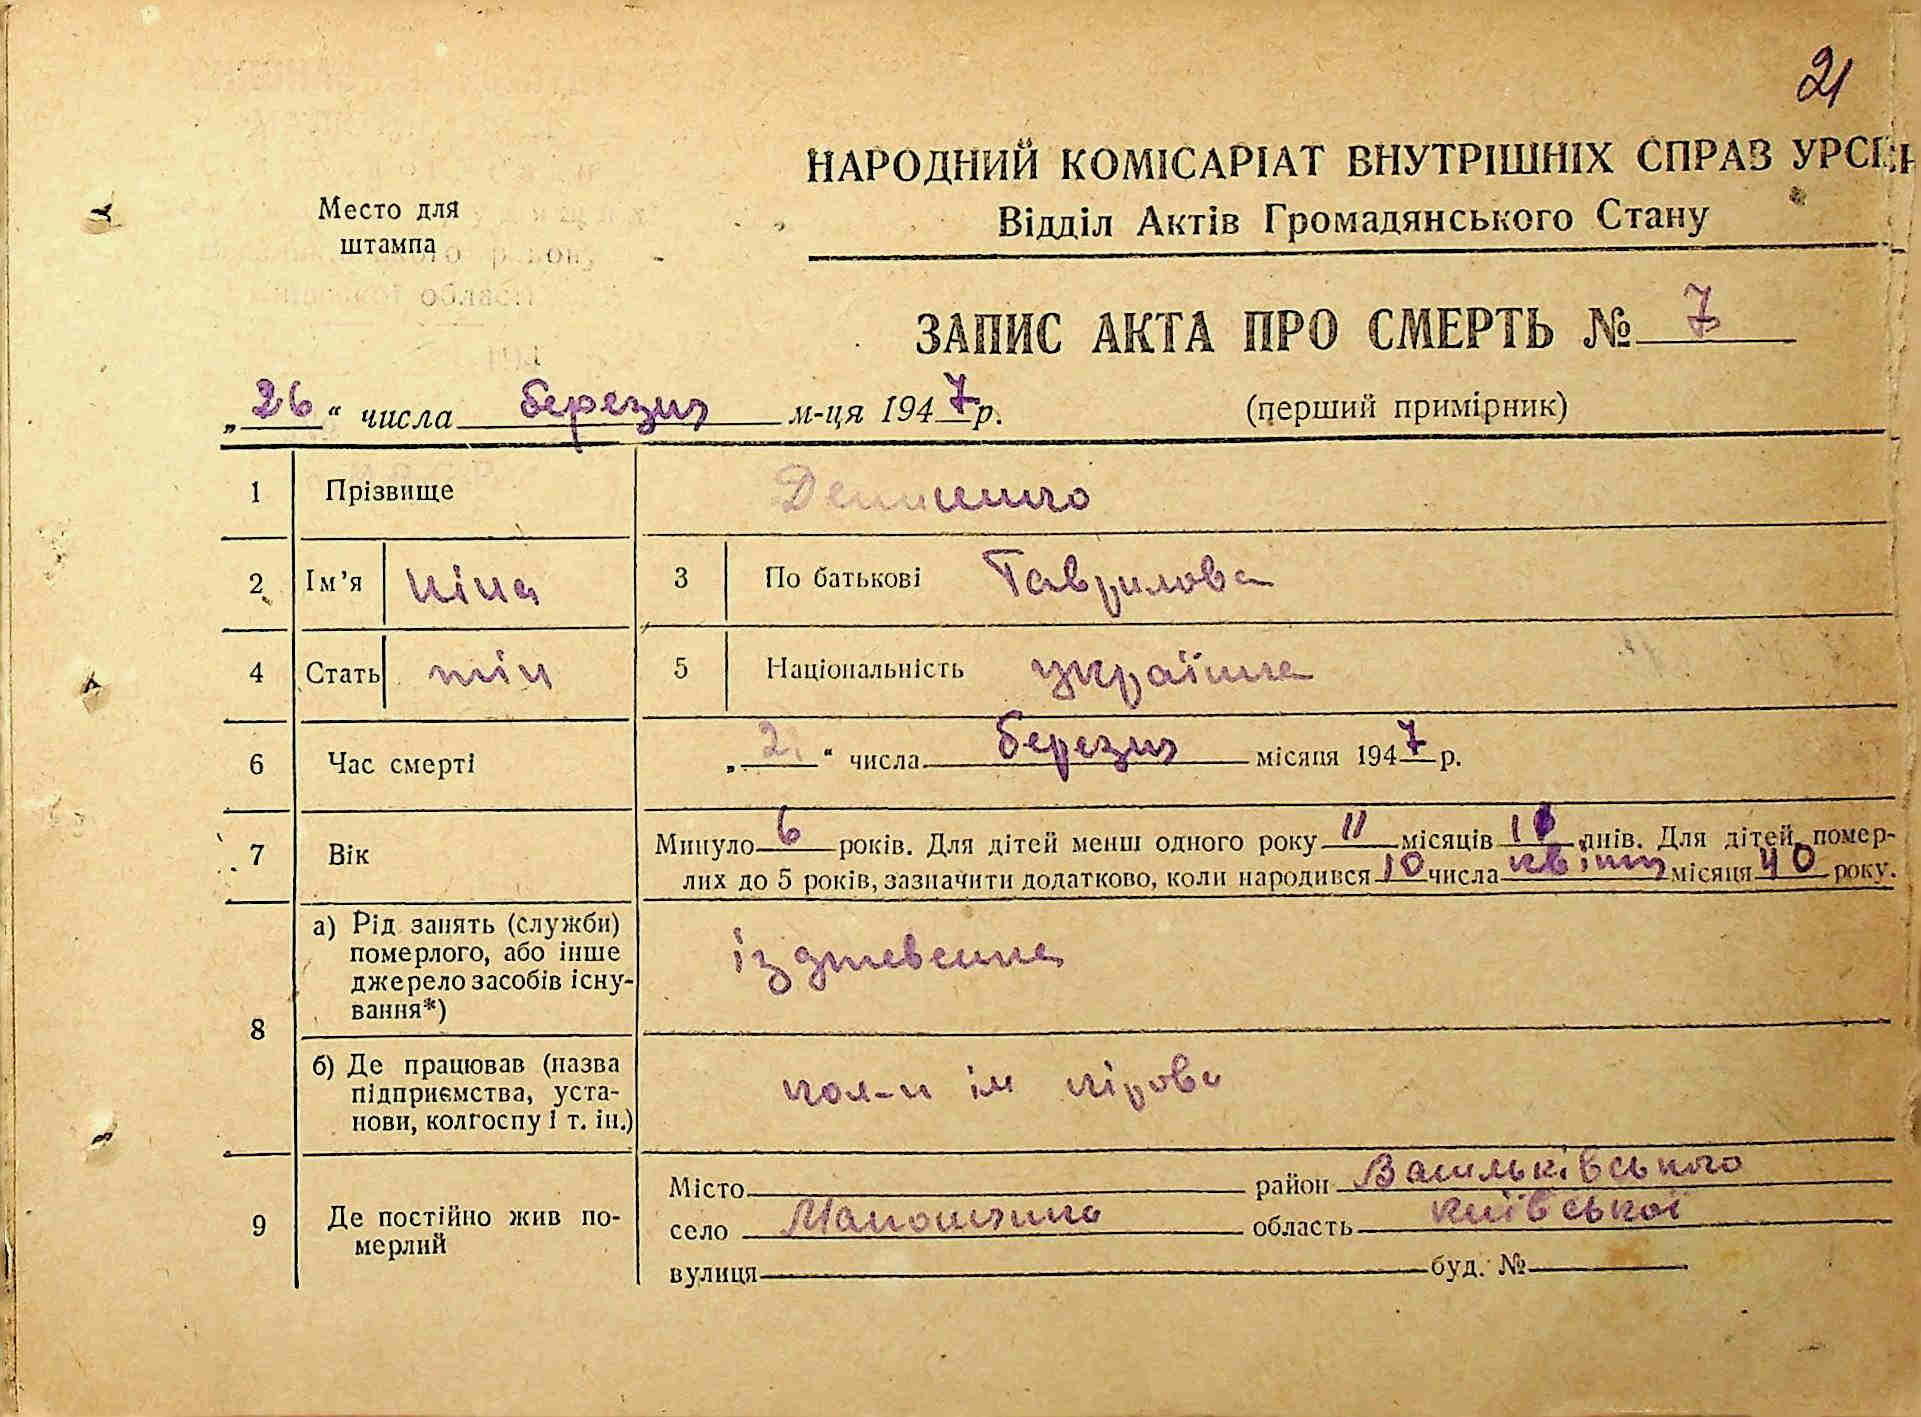 21
НАРОДНИЙ КОМІСАРІАТ ВНУТРІШНІХ СПРАВ УРСР
Відділ Актів Громадянського Стану
Место для
штампа
ЗАПИС АКТА ПРО СМЕРТЬ № 7
„26“ числа березня м-ця 1947 р.
(перший примірник)
1 Прізвище
2 Ім’я ніна 3 По батькові Гаврилова
4 Стать жін 5 Національність українка
6 Час смерті „2 “ числа березня місяця 1947 р.
7 Вік Минуло 6 років. Для дітей менш одного року 11 місяців днів. Для дітей, помер-
лих до 5 років, зазначити додатково, коли народився 10 числа квітня місяця 40 року.
8 а) Рід занять (служби)
померлого, або інше
джерело засобів існу-
вання*)
б) Де працював (назва
підприємства, уста-
нови, колгоспу і т. ін.)
кол-п ім кірова
9 Де постійно жив по-
мерлий
Місто район Васильківського
село область київської
вулиця буд. №